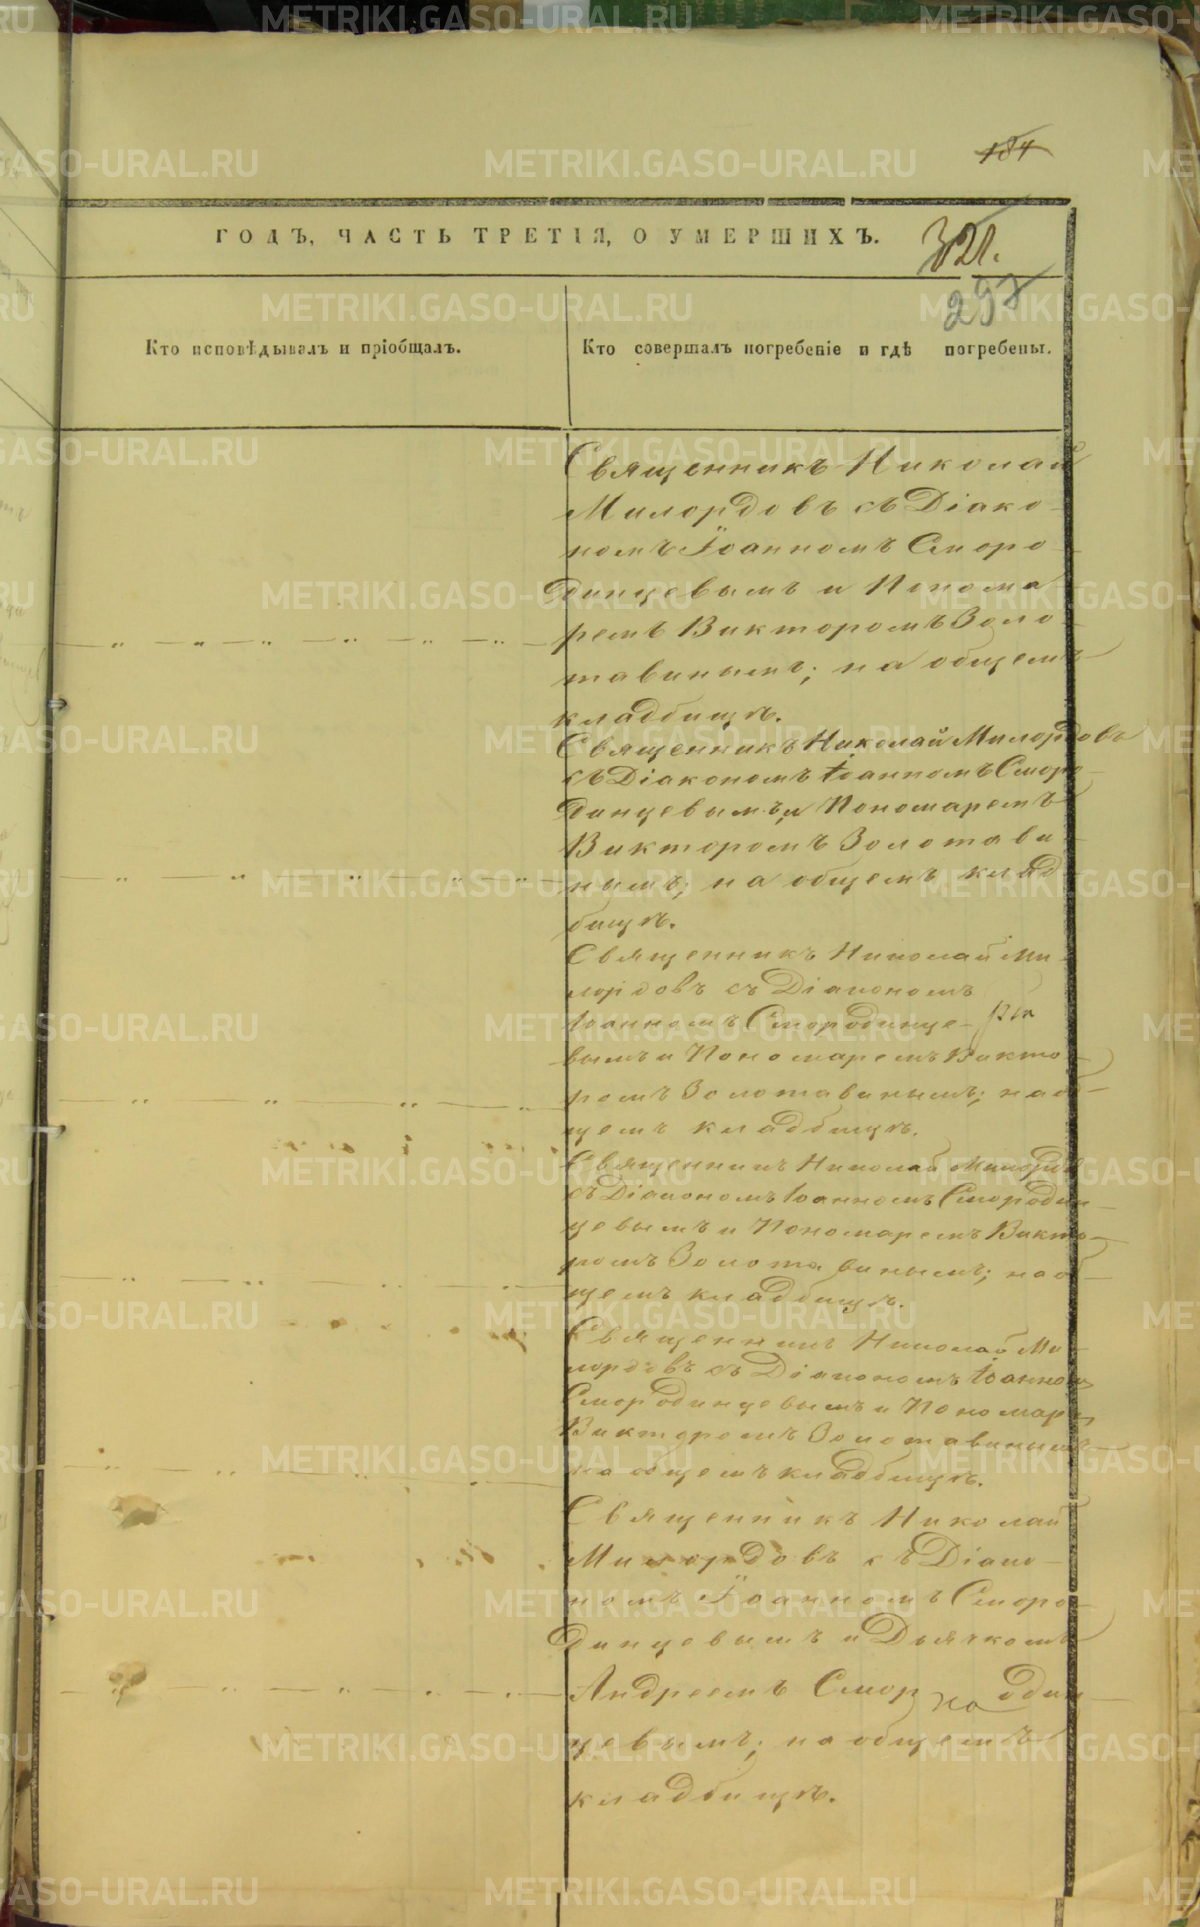 184
ГОДЪ, ЧАСТЬ ТРЕТІЯ, О УМЕРШИХЪ.
321.
297
Кто исповѣдывалъ и пріобщалъ.
Кто совершалъ погребеніе и гдѣ погребены.
Священникъ Николай
Милордовъ съ Діако
номъ Іоанномъ Сморо
динцевымъ и Понома
ремъ Викторомъ Золо
тавинымъ; на общемъ
кладбищѣ.
Священникъ Николай Милордовъ
съ Діакономъ Іоанномъ Сморо
динцевымъ и Пономаремъ
Викторомъ Золотави
нымъ; на общемъ клад
бищѣ.
Священникъ Николай Ми
лордовъ съ Діакономъ
Іоанномъ Смородинце
вымъ и Пономаремъ Викто
ромъ Золотавинымъ; на об
щемъ кладбищѣ.
Священникъ Николай Милордовъ
съ Діакономъ Іоанномъ Смородин
цевымъ и Пономаремъ Викто
ромъ Золотавинымъ; на об
щемъ кладбищѣ.
Священникъ Николай Ми
лордовъ съ Діакономъ Іоанномъ
Смородинцевымъ и Пономаремъ
Викторомъ Золотавинымъ
на общемъ кладбищѣ.
Священникъ Николай
Милордовъ съ Діако
номъ Іоанномъ Сморо
динцевымъ и Дьячкомъ
Андреемъ Смородин
цевымъ; на общемъ
кладбищѣ.
METRIKI.GASO-URAL.RU